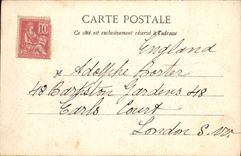 CARTE POSTALE
Ce côté est exclusivement réservé à l'adresse
10
England
Adolphe
48 Gardens 48
Earls Court
London S.W.